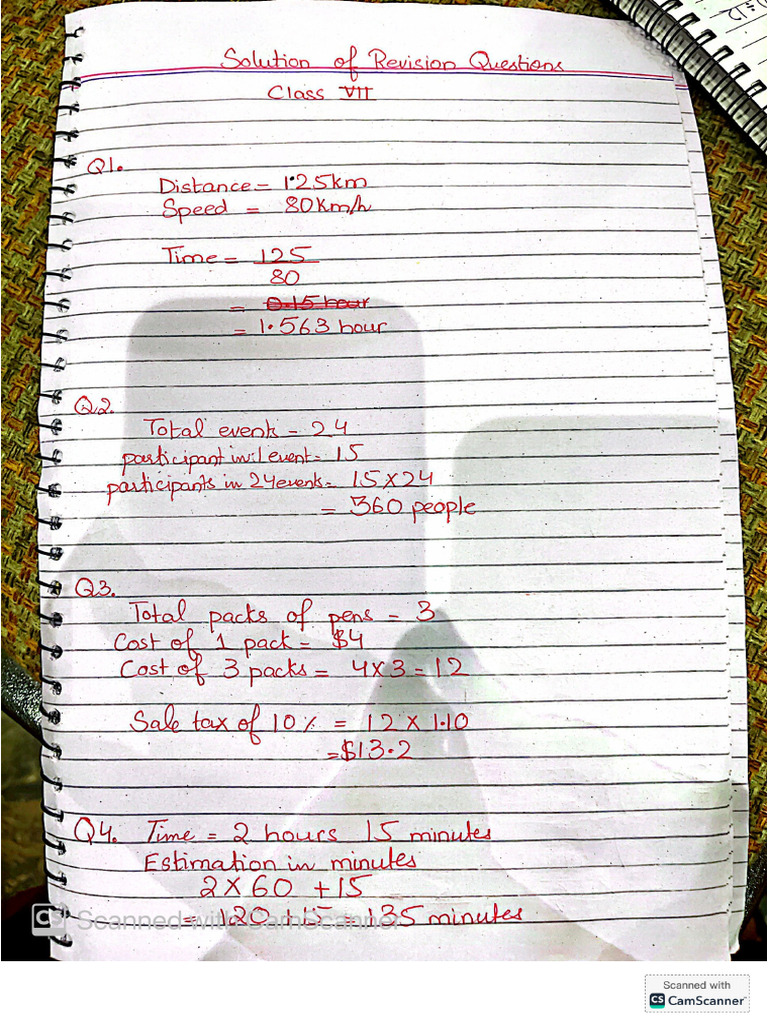 Solution of Revision Questions
Class VII
Q1.
Distance = 1.25km
Speed = 80Km/h
Time = 125
80
= 0.15 hour
= 1.563 hour
Q2.
Total events = 24
participant in 1 event = 15
participants in 24 events = 15 × 24
= 360 people
Q3.
Total packs of pens = 3
Cost of 1 pack = $4
Cost of 3 packs = 4 × 3 = 12
Sale tax of 10% = 12 × 1.10
= $13.2
Q4. Time = 2 hours 15 minutes
Estimation in minutes
2 × 60 + 15
= 120 + 15 = 135 minutes
CS Scanned with CamScanner
Scanned with
CS CamScanner